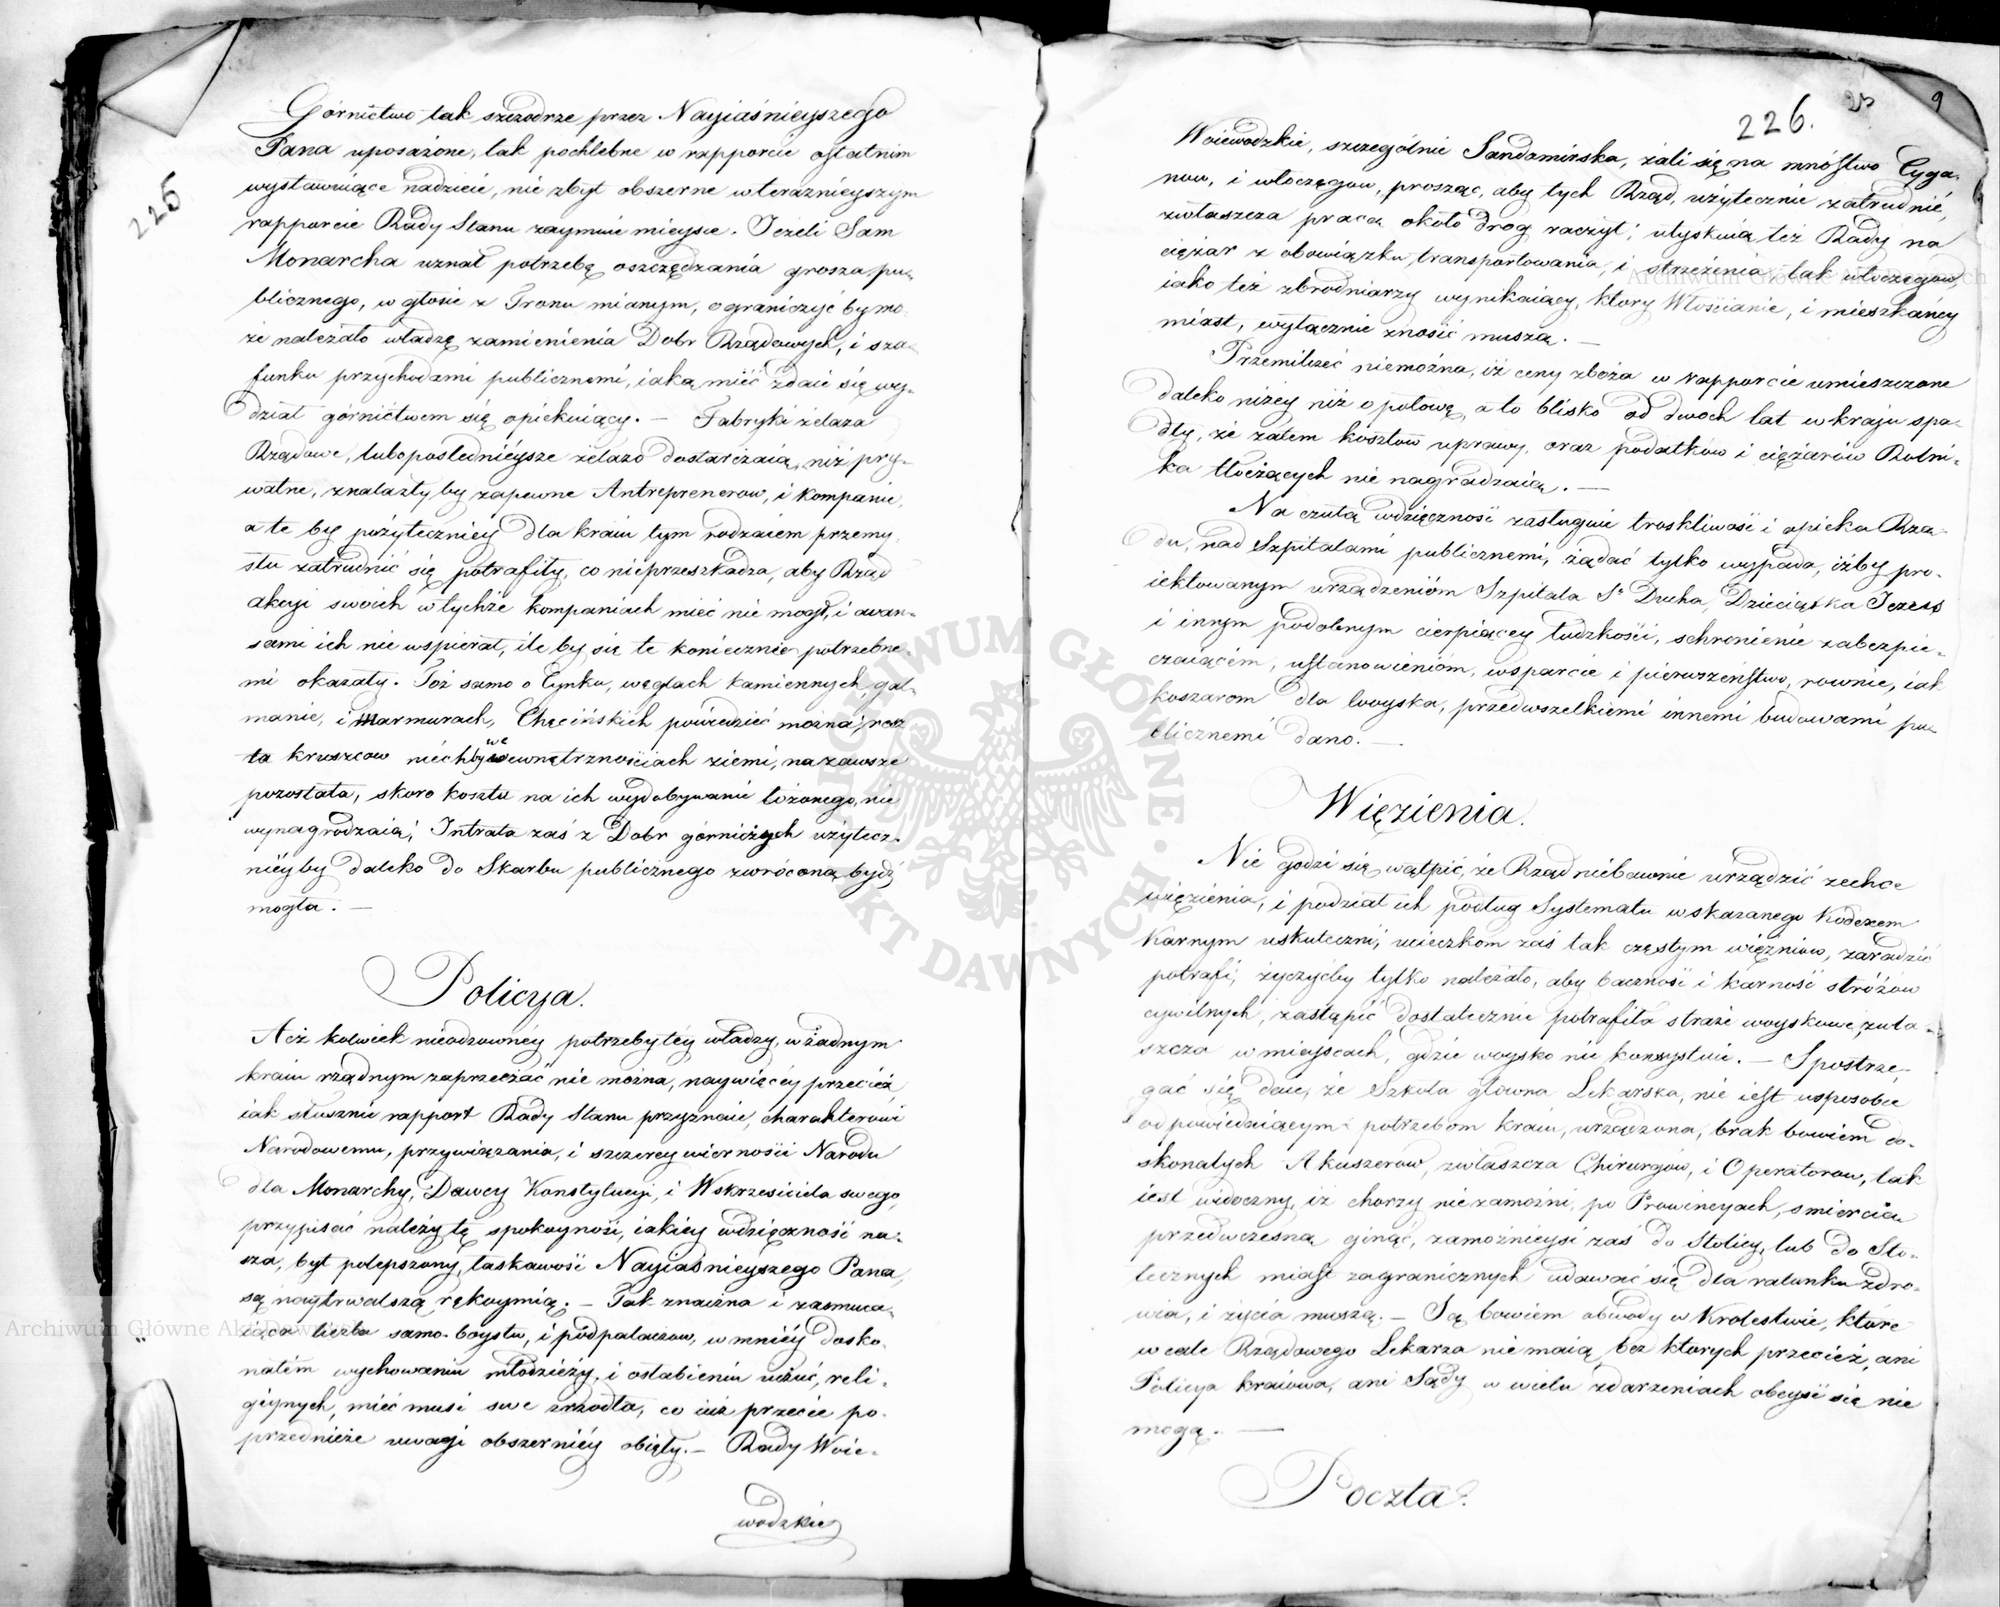 226
Górnictwo tak szczodrze przez Nayiaśnieyszego
Pana uposażone, tak pochlebne w rapporcie ostatnim
wystawuiące nadzieie, nie zbyt obszerne w teraznieyszym
rapporcie Rady Stanu zaymuie mieysce. Jeżeli Sam
Monarcha uznał potrzebę oszczędzania grosza pu-
blicznego, w głosie z Tronu mianym, ograniczyć by mo-
że należało władzę zamienienia Dobr Rządowych, i sza-
funku przychodami publicznemi, iaką mieć zdaie się wy-
dział górnictwem się opiekuiący. — Fabryki żelaza
Rządowe, lubo poślednieysze żelazo dostarczaią, niż pry-
watne, znalazły by zapewne Antreprenerow, i kompanie,
a te by pożyteczniey dla kraiu tym rodzaiem przemy-
słu zatrudnić się potrafiły, co nieprzeszkadza, aby Rząd
akcyi swoich w tychże kompaniach mieć nie mógł, i awan-
sami ich nie wspierał, ile by się te koniecznie potrzebne-
mi okazały. Toż samo o Cynku, węglach kamiennych, gal-
manie, i Marmurach, Chęcińskich powiedzieć można; resz-
ta kruszcow niechby we wewnętrznościach ziemi, na zawsze
pozostała, skoro kosztu na ich wydobywanie łożonego, nie
wynagrodzaią; Intrata zaś z Dobr górniczych użytecz-
niey by daleko do Skarbu publicznego zwróconą bydź
mogła. —
Policya.
Acz kolwiek nieodzowney potrzeby tey władzy, w żadnym
kraiu rządnym zaprzeczać nie można, naywięcey przecież,
iak słusznie rapport Rady Stanu przyznaie, charakterowi
Narodowemu, przywiązania, i szczerey wierności Narodu
dla Monarchy, Dawcy Konstytucyi, i Wskrzesiciela swego,
przypisać należy tę spokoyność, iakiey wdzięczność na-
sza, byt polepszony, łaskawość Nayiaśnieyszego Pana,
są naytrwalszą rękoymią. — Tak znaczna i zasmuca-
iąca liczba samo-boystw, i podpalaczow, w mniey dosko-
nałém wychowaniu młodzieży, i osłabieniu uczuć, reli-
giynych, mieć musi swe źrzodła, co iuż przecie po-
przednieże uwagi obszerniey obięły. — Rady Woie-
wodzkie
226. 9
Woiewodzkie, szczególnie Sandomirska, żali się na mnóstwo Cyga-
now, i włoczęgow, prosząc, aby tych Rząd, użytecznie zatrudnić,
zwłaszcza pracą około drog raczył; utyskuią też Rady na
ciężar z obowiązku, transportowania, i strzeżenia tak włoczęgow,
iako też zbrodniarzy wynikaiący, ktory Włościanie, i mieszkańcy
miast, wyłącznie znosić muszą. —
Przemilczeć niemożna, iż ceny zboża w rapporcie umieszczone
daleko niżey niż o połowę, a to blisko od dwoch lat w kraiu spa-
dły, że zatem kosztow uprawy, oraz podatków i ciężarów Rolni-
ka tłoczących nie nagradzaią. —
Na czułą wdzięczność zasługuie troskliwość i opieka Rzą-
du, nad Szpitalami publicznemi, żądać tylko wypada, iżby pro-
iektowanym urządzenióm Szpitala Sº Ducha, Dzieciątka Jezus
i innym podobnym cierpiącey ludzkości, schronienie zabezpie-
czaiącém, ustanowieniom, wsparcie i pierwszeństwo, rownie, iak
koszarom dla woyska, przedwszelkiemi innemi budowami pu-
blicznemi dano. —
Więzienia.
Nie godzi się wątpić, że Rząd niebawnie urządzić zechce
więzienia, i podział ich podług Systematu wskazanego Kodexem
Karnym uskuteczni, ucieczkom zaś tak częstym więzniow, zaradzić
potrafi, życzyćby tylko należało, aby baczność i karność stróżów
cywilnych, zastąpić dostatecznie potrafiła straże woyskowe, zwła-
szcza w mieyscach, gdzie woysko nie konsystuie. — Spostrze-
gać się daie, że Szkoła główna Lekarska, nie iest w sposobie
odpowiedaiącym potrzebom kraiu, urządzona, brak bowiem do-
skonałych Akuszerów, zwłaszcza Chirurgów, i Operatorow, tak
iest widoczny, iż chorzy niezamożni, po Prowincyach, smiercią
przedwczesną ginąć, zamożnieysi zaś do Stolicy, lub do Sto-
łecznych miast zagranicznych udawać się dla ratunku zdro-
wia, i życia muszą. — Są bowiem obwody w Krolestwie, które
wcale Rządowego Lekarza nie maią, bez ktorych przecież, ani
Policya kraiowa, ani Sądy w wielu zdarzeniach obeyść się nie
mogą. —
Poczta.
ARCHIWUM GŁÓWNE AKT DAWNYCH
Archiwum Główne Akt Dawnych
Archiwum Główne Akt Dawnych